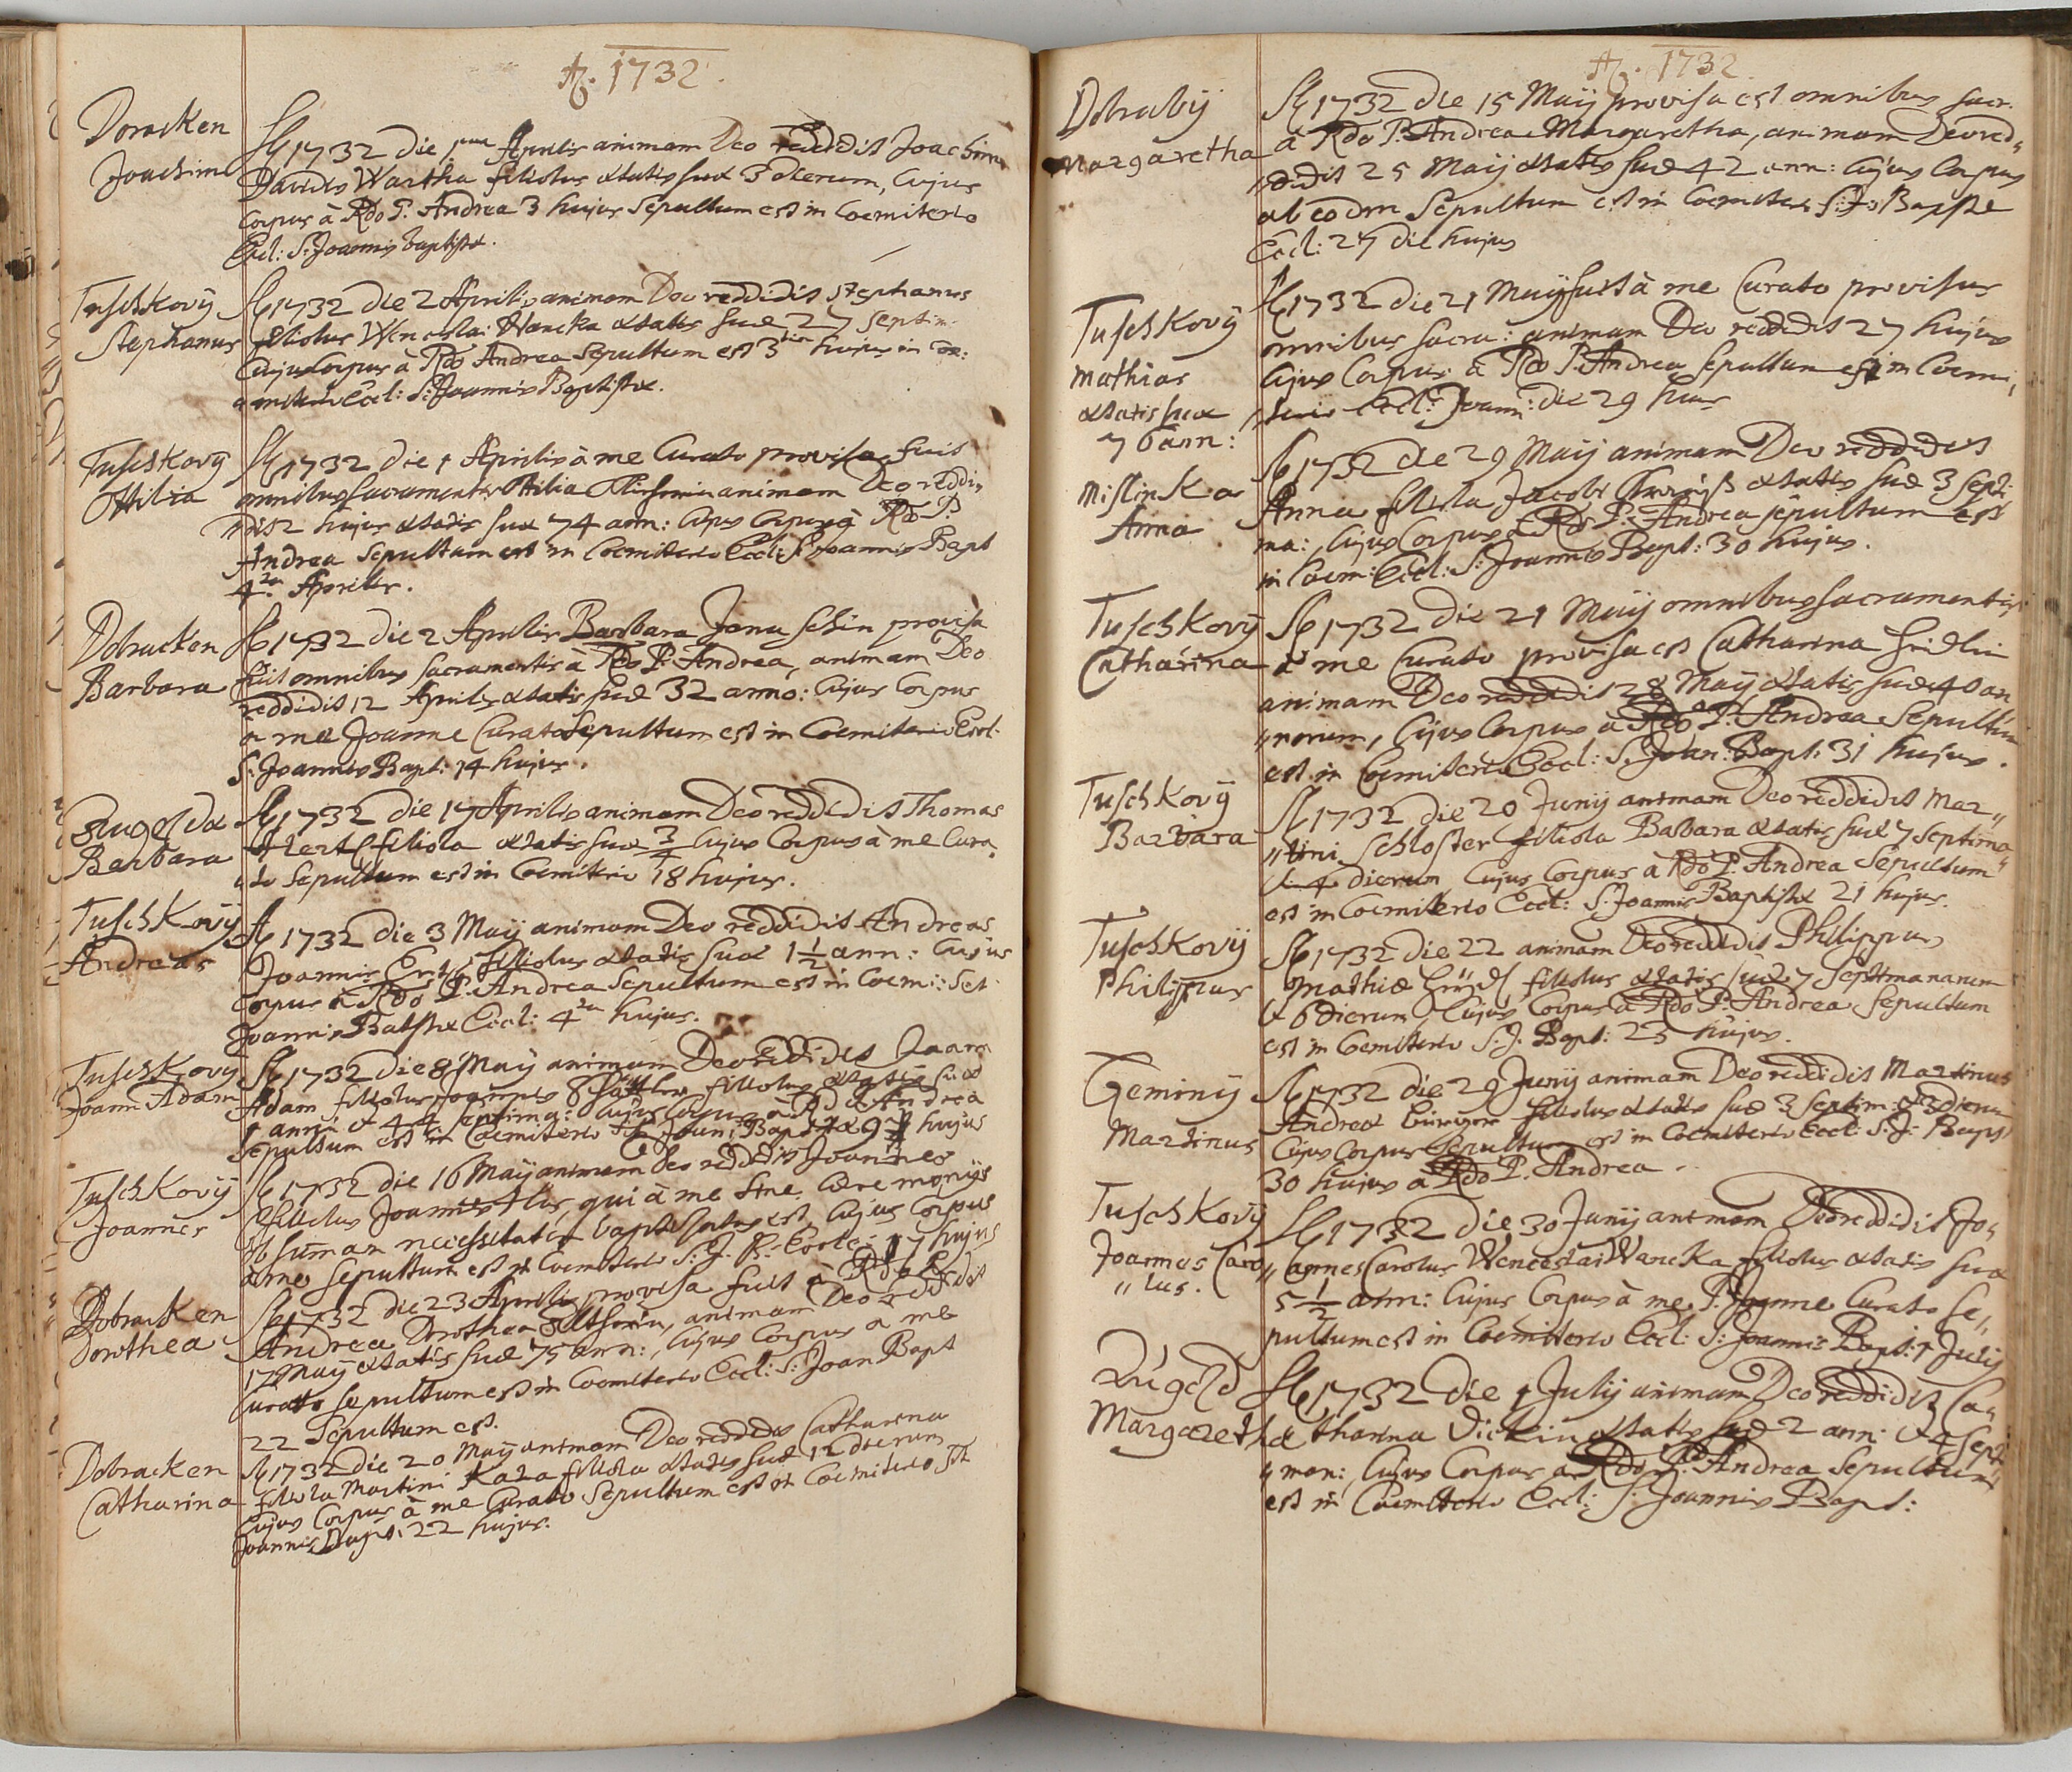 A. 1732.
Doracken
Joachim
A 1732 die 1ma Aprilis animam Deo reddidit Joachim
Davidis Wartha filiolus ætatis suæ 3 dierum, cujus
Corpus à Rdo P. Andrea 3 hujus Sepultum est in Coemiterio
Eccl: S: Joannis baptistæ.
Tuschkovÿ
Stephanus
A 1732 die 2 Aprilis animam Deo reddidit Stephanus
filiolus Wencesla: Hancka ætatis suæ 27 Septim:
Cujus Corpus à Rdo Andrea Sepultum est 3 hujus in Coe:
miterio Eccl: S: Joannis Baptistæ.
Tuschkovÿ
Ottilia
A 1732 die 1 Aprilis à me Curato provisa fuit
omnibus sacramentis Ottilia animam Deo reddi„
dit 2 hujus ætatis suæ 74 ann: Cujus Corpus à Rdo P
Andrea Sepultum est in Coemiterio Eccl: S Joannis Bapt
4ta Aprilis.
Dobracken
Barbara
A 1732 die 2 Aprilis Barbara Janu schin provisa
fuit omnibus sacramentis à Rdo P. Andrea, animam Deo
reddidit 12 Aprilis ætatis suæ 32 anno: Cujus Corpus
a me Joanne Curato Sepultum est in Coemiterio Eccl.
S: Joannis Bapt: 14 hujus.
Barbara
A 1732 die 17 Aprilis animam Deo reddidit Thomas
filiola ætatis suæ 3/4 Cujus Corpus à me Cura„
to Sepultum est in Coemiterio 18 hujus.
Tuschkovÿ
Andreas
A 1732 die 3 Maÿ animam Deo reddidit Andreas
Joannis filiolus ætatis suæ 1 1/2 ann: Cujus
Corpus à Rdo P. Andrea Sepultum est in Coemi: Sct
Joannis Babtistæ Eccl: 4ta hujus.
Tuschkovÿ
Joann Adam
A 1732 die 8 Maÿ animam Deo reddidit Joann
Adam filiolus Joannis filiolus ætatis suæ
1 anni & 44 septima: Cujus Corpus à Rdo P Andrea
Sepultum est in Coemiterio Joan: Baptistæ 9 hujus
Tuschkovÿ
Joannes
A 1732 die 16 Maÿ animam Deo reddidit Joannes
filiolus Joannis qui à me sine Cæremonÿs
ob sumam necessitatem baptizatus est, Cujus Corpus
a me sepultum est in Coemiterio S: J. B: Eccle: 17 hujus
Dobracken
Dorothea
A 1732 die 23 Aprilis provisa fuit à Rdo P
Andrea Dorothea animam Deo reddidit
17 Maÿ ætatis suæ 75 ann:, Cujus Corpus a me
Curato sepultum est in Coemiterio Eccl: S: Joan Bapt
22 Sepultum est.
Dobracken
Catharina
A 1732 die 20 Maÿ animam Deo reddidit Catharina
filiola Martini Kaza filiola ætatis suæ 12 dierum
Cujus Corpus à me Curato Sepultum est in Coemiterio Sti
Joannis Bapt: 22 hujus.
A. 1732.
Dobrabÿ
Margaretha
A 1732 die 15 Maÿ provisa est omnibus sacr.
à Rdo P. Andrea Margaretha, animam Deo red„
„didit 25 Maÿ ætatis suæ 42 ann: Cujus Corpus
ab eodm Sepultum est in Coemiter S: Jo Baptste
Eccl: 27 die hujus
Tuschkovÿ
Mathias
ætatis suæ
76 ann:
A 1732 die 21 Maÿ fuit à me Curato provisus
omnibus sacra: animam Deo reddidit 27 hujus
Cujus Corpus à Rdo P. Andrea Sepultum est in Coemi„
„terio Eccl: Joann: die 29 hujus
Mislinka
Anna
A 1732 die 29 Maÿ animam Deo reddidit
Anna filiola Jacobi ætatis suæ 3 septi
ma:, Cujus Corpus à Rdo P. Andrea sepultum est
in Coem: Eccl: S: Joannis Bapt: 30 hujus.
Tuschkovÿ
Catharina
A 1732 die 21 Maÿ omnibus sacramentis
à me Curato provisa est Catharina Fridlin
animam Deo reddidit 28 Maÿ ætatis suæ 40 an
„norum, Cujus Corpus à Rdo P. Andrea Sepultum
est in Coemiterio Eccl: S: Joan: Bapt: 31 hujus.
Tuschkovÿ
Barbara
A 1732 die 20 Junÿ animam Deo reddidit Mar„
„tini Schloster filiola Barbara ætatis suæ 7 Septima„
& 4 dierum Cujus Corpus à Rdo P. Andrea Sepultum
est in Coemiterio Eccl: S: Joannis Baptistæ 21 hujus.
Tuschkovÿ
Philippus
A 1732 die 22 animam Deo reddidit Philippus
Mathiæ filiolus ætatis suæ 7 Septimanarum
& 6 dierum Cujus Corpus à Rdo P. Andrea Sepultum
est in Coemiterio S. J. Bapt: 23 hujus.
Geminÿ
Martinus
A 1732 die 29 Junÿ animam Deo reddidit Martinus
Andreæ filiolus ætatis suæ 3 septim: & 3 dierum
Cujus Corpus Sepultum est in Coemiterio Eccl: S: J: Bapt
30 hujus a Rdo P. Andrea.
Tuschkovÿ
Joannes Caro
„lus.
A 1732 die 30 Junÿ animam Deo reddidit Jo„
„annes Carolus Wenceslai Wancka filiolus ætatis suæ
5 1/2 ann: Cujus Corpus à me P. Joanne Curato Se„
pultum est in Coemiterio Eccl: S: Joannis Bapt: 1 Julÿ
Lugezd
Margaretha
A 1732 die 1 Julÿ animam Deo reddidit Ca„
tharina ætatis suæ 2 ann: & 4 Septi
„man:, Cujus Corpus a Rdo P. Andrea Sepultum
est in Coemiterio Eccl: S: Joannis Bapt: